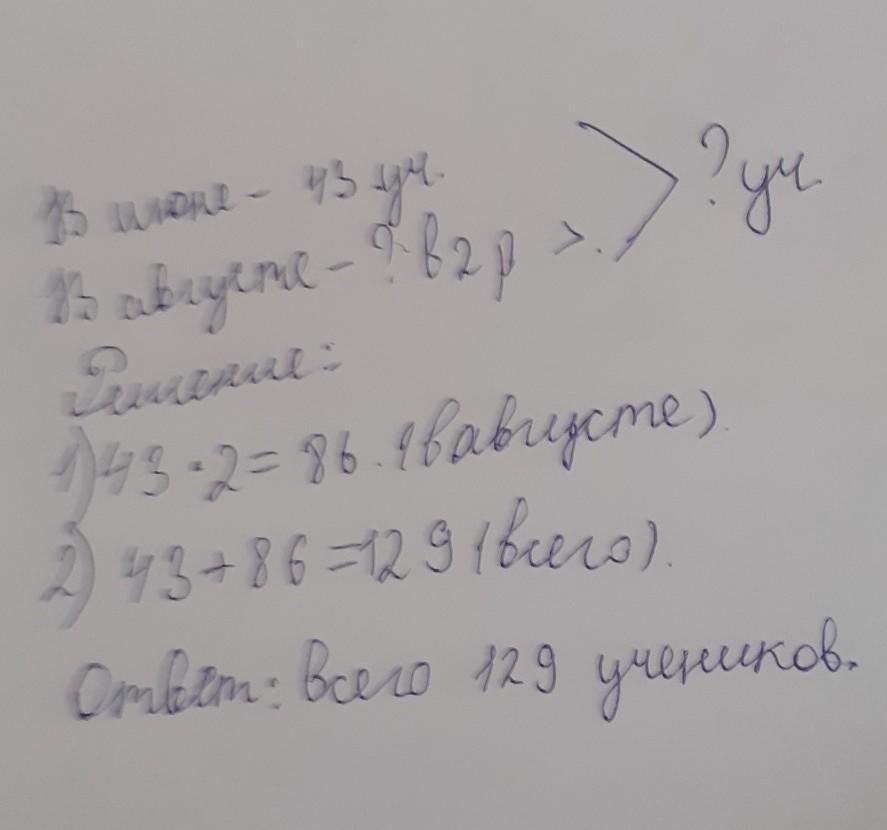 В июне - 43 уч.
В августе - ? в 2 р >. ? уч.
Решение:
1) 43 · 2 = 86. (в августе).
2) 43 + 86 = 129 (всего).
Ответ: всего 129 учеников.